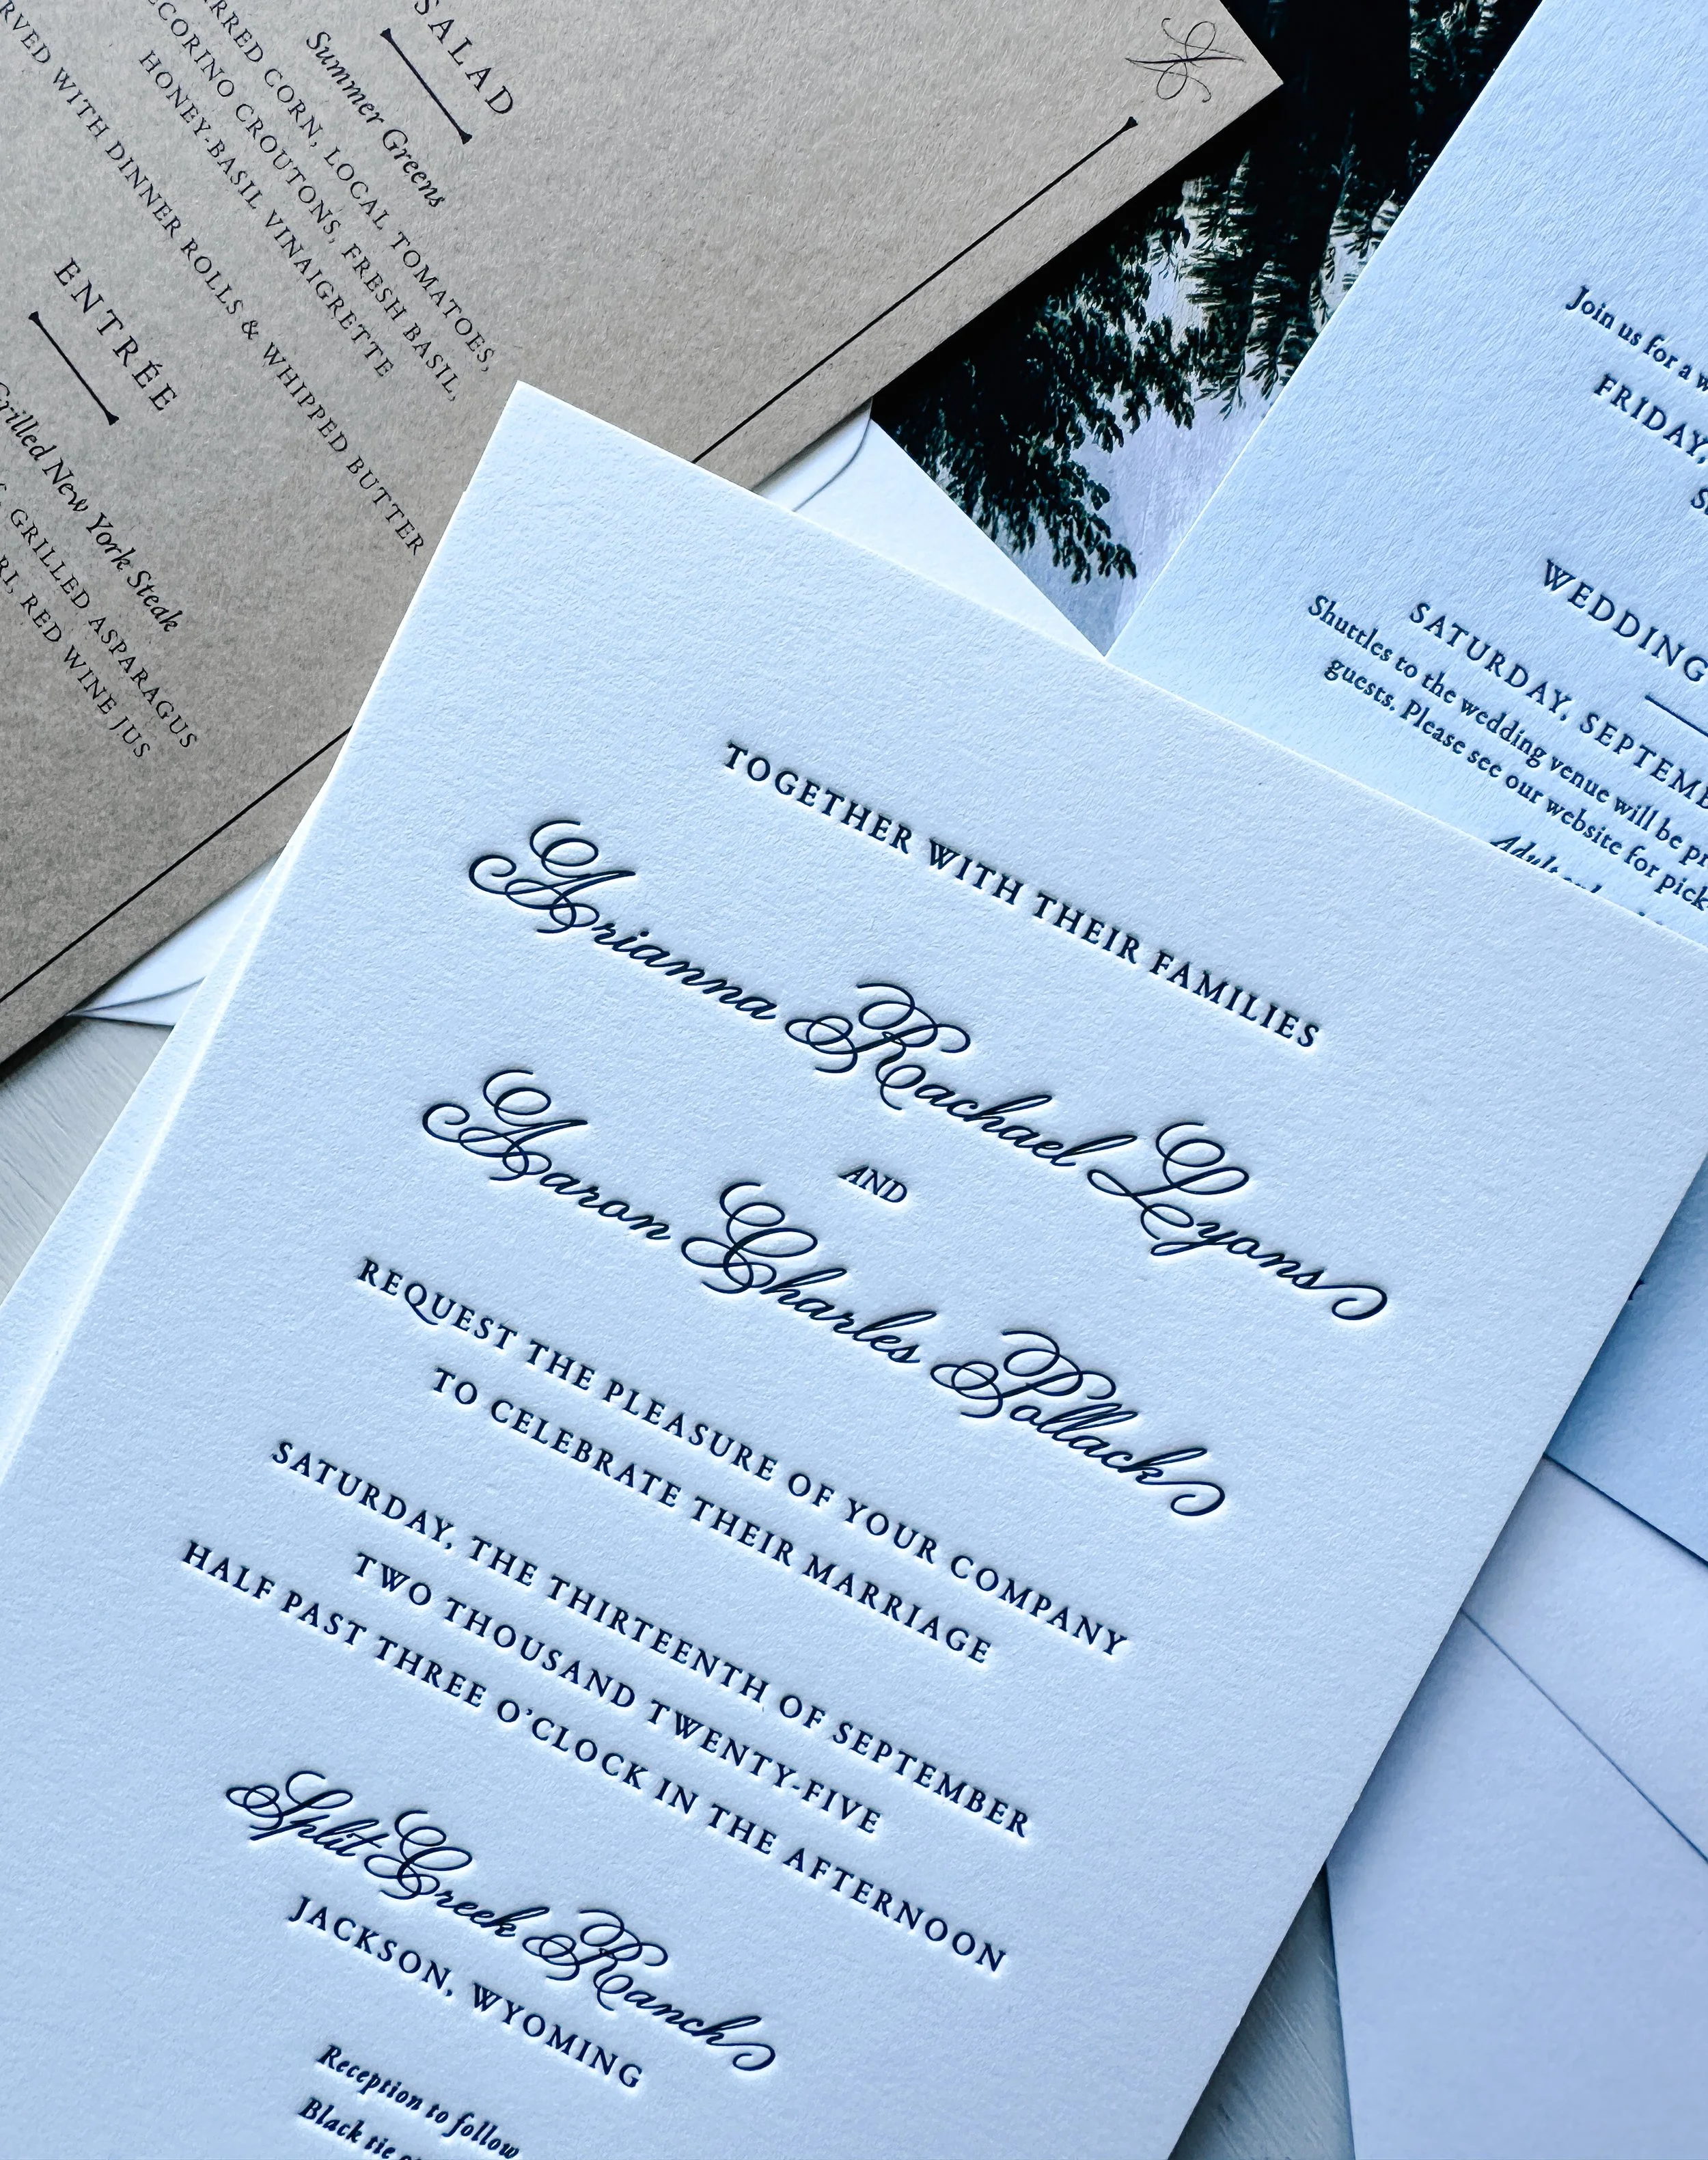 SALAD
Summer Greens
CORN, LOCAL TOMATOES,
CROUTONS, FRESH BASIL,
HONEY-BASIL VINAIGRETTE
WITH DINNER ROLLS & WHIPPED BUTTER
ENTRÉE
Grilled New York Steak
GRILLED ASPARAGUS
RED WINE JUS
Join us for a
FRIDAY,
WEDDING
SATURDAY,
Shuttles to the wedding venue will be
guests. Please see our website for
TOGETHER WITH THEIR FAMILIES
Arianna Rachael Lyons
AND
Aaron Charles Pollack
REQUEST THE PLEASURE OF YOUR COMPANY
TO CELEBRATE THEIR MARRIAGE
SATURDAY, THE THIRTEENTH OF SEPTEMBER
TWO THOUSAND TWENTY-FIVE
HALF PAST THREE O'CLOCK IN THE AFTERNOON
Split Creek Ranch
JACKSON, WYOMING
Reception to follow
Black tie